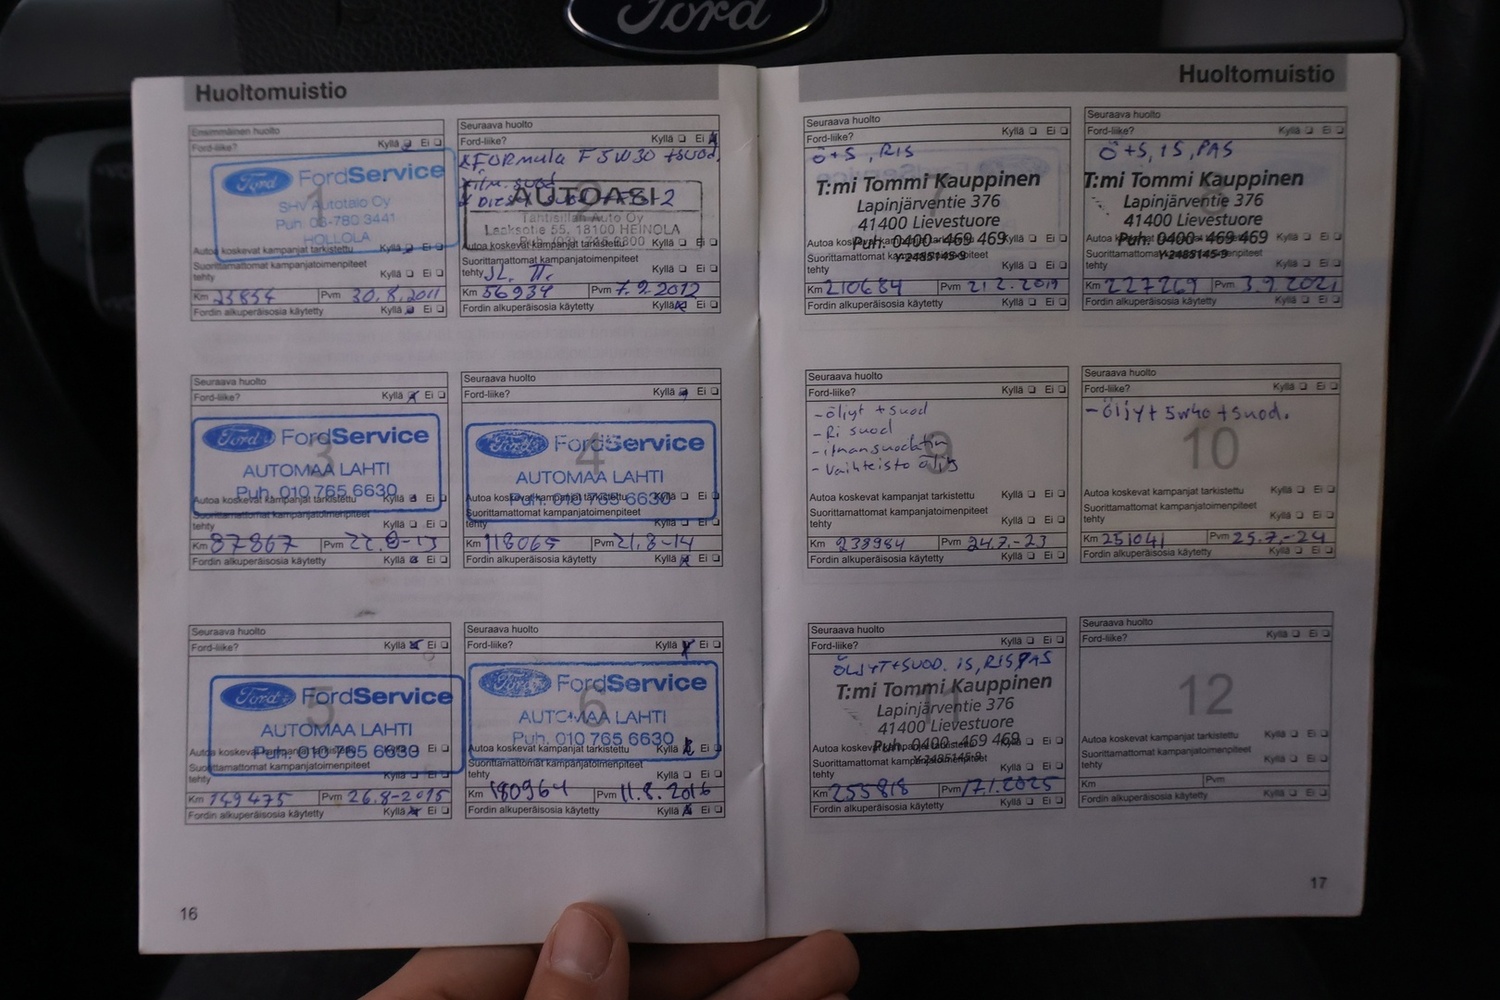 Ford
Huoltomuistio
Ensimmäinen huolto
Ford-liike? Kyllä Ei
1
Ford FordService
SHV Autotalo Oy
Puh. 03-780 3441
HOLLOLA
Autoa koskevat kampanjat tarkistettu Kyllä Ei
Suorittamattomat kampanjatoimenpiteet
tehty Kyllä Ei
Km 23854 Pvm 30.8.2011
Fordin alkuperäisosia käytetty Kyllä Ei
Seuraava huolto
Ford-liike? Kyllä Ei
FORMULA F 5W30 +SUOD.
2
AUTOASI
Tähtisillan Auto Oy
Laaksotie 55, 18100 HEINOLA
Autoa koskevat kampanjat tarkistettu Kyllä Ei
Suorittamattomat kampanjatoimenpiteet
tehty Kyllä Ei
Km 56934 Pvm 7.9.2012
Fordin alkuperäisosia käytetty Kyllä Ei
Seuraava huolto
Ford-liike? Kyllä Ei
3
Ford FordService
AUTOMAA LAHTI
Puh. 010 765 6630
Autoa koskevat kampanjat tarkistettu Kyllä Ei
Suorittamattomat kampanjatoimenpiteet
tehty Kyllä Ei
Km 87867 Pvm 22.8-13
Fordin alkuperäisosia käytetty Kyllä Ei
Seuraava huolto
Ford-liike? Kyllä Ei
4
Ford FordService
AUTOMAA LAHTI
Puh. 010 765 6630
Autoa koskevat kampanjat tarkistettu Kyllä Ei
Suorittamattomat kampanjatoimenpiteet
tehty Kyllä Ei
Km 118065 Pvm 21.8-14
Fordin alkuperäisosia käytetty Kyllä Ei
Seuraava huolto
Ford-liike? Kyllä Ei
5
Ford FordService
AUTOMAA LAHTI
Puh. 010 765 6630
Autoa koskevat kampanjat tarkistettu Kyllä Ei
Suorittamattomat kampanjatoimenpiteet
tehty Kyllä Ei
Km 149475 Pvm 26.8-2015
Fordin alkuperäisosia käytetty Kyllä Ei
Seuraava huolto
Ford-liike? Kyllä Ei
6
Ford FordService
AUTOMAA LAHTI
Puh. 010 765 6630
Autoa koskevat kampanjat tarkistettu Kyllä Ei
Suorittamattomat kampanjatoimenpiteet
tehty Kyllä Ei
Km 180964 Pvm 11.8.2016
Fordin alkuperäisosia käytetty Kyllä Ei
16
Huoltomuistio
Seuraava huolto
Ford-liike? Kyllä Ei
Ö+S, RIS
T:mi Tommi Kauppinen
Lapinjärventie 376
41400 Lievestuore
Puh. 0400-469 469
Y-2485145-9
Autoa koskevat kampanjat tarkistettu Kyllä Ei
Suorittamattomat kampanjatoimenpiteet
tehty Kyllä Ei
Km 210684 Pvm 21.2.2019
Fordin alkuperäisosia käytetty Kyllä Ei
Seuraava huolto
Ford-liike? Kyllä Ei
Ö+S, IS, PAS
T:mi Tommi Kauppinen
Lapinjärventie 376
41400 Lievestuore
Puh. 0400-469 469
Y-2485145-9
Autoa koskevat kampanjat tarkistettu Kyllä Ei
Suorittamattomat kampanjatoimenpiteet
tehty Kyllä Ei
Km 227269 Pvm 3.9.2021
Fordin alkuperäisosia käytetty Kyllä Ei
Seuraava huolto
Ford-liike? Kyllä Ei
- öljyt + suod
- Ri suod
- ilmansuodatin
- Vaihteisto öljy
9
Autoa koskevat kampanjat tarkistettu Kyllä Ei
Suorittamattomat kampanjatoimenpiteet
tehty Kyllä Ei
Km 238984 Pvm 24.7.-23
Fordin alkuperäisosia käytetty Kyllä Ei
Seuraava huolto
Ford-liike? Kyllä Ei
- öljyt 5w40 + suod.
10
Autoa koskevat kampanjat tarkistettu Kyllä Ei
Suorittamattomat kampanjatoimenpiteet
tehty Kyllä Ei
Km 251041 Pvm 25.7.-24
Fordin alkuperäisosia käytetty Kyllä Ei
Seuraava huolto
Ford-liike? Kyllä Ei
ÖLJYT+SUOD. IS, RIS, PAS
11
T:mi Tommi Kauppinen
Lapinjärventie 376
41400 Lievestuore
Puh. 0400-469 469
Y-2485145-9
Autoa koskevat kampanjat tarkistettu Kyllä Ei
Suorittamattomat kampanjatoimenpiteet
tehty Kyllä Ei
Km 255818 Pvm 17.1.2025
Fordin alkuperäisosia käytetty Kyllä Ei
Seuraava huolto
Ford-liike? Kyllä Ei
12
Autoa koskevat kampanjat tarkistettu Kyllä Ei
Suorittamattomat kampanjatoimenpiteet
tehty Kyllä Ei
Km Pvm
Fordin alkuperäisosia käytetty Kyllä Ei
17